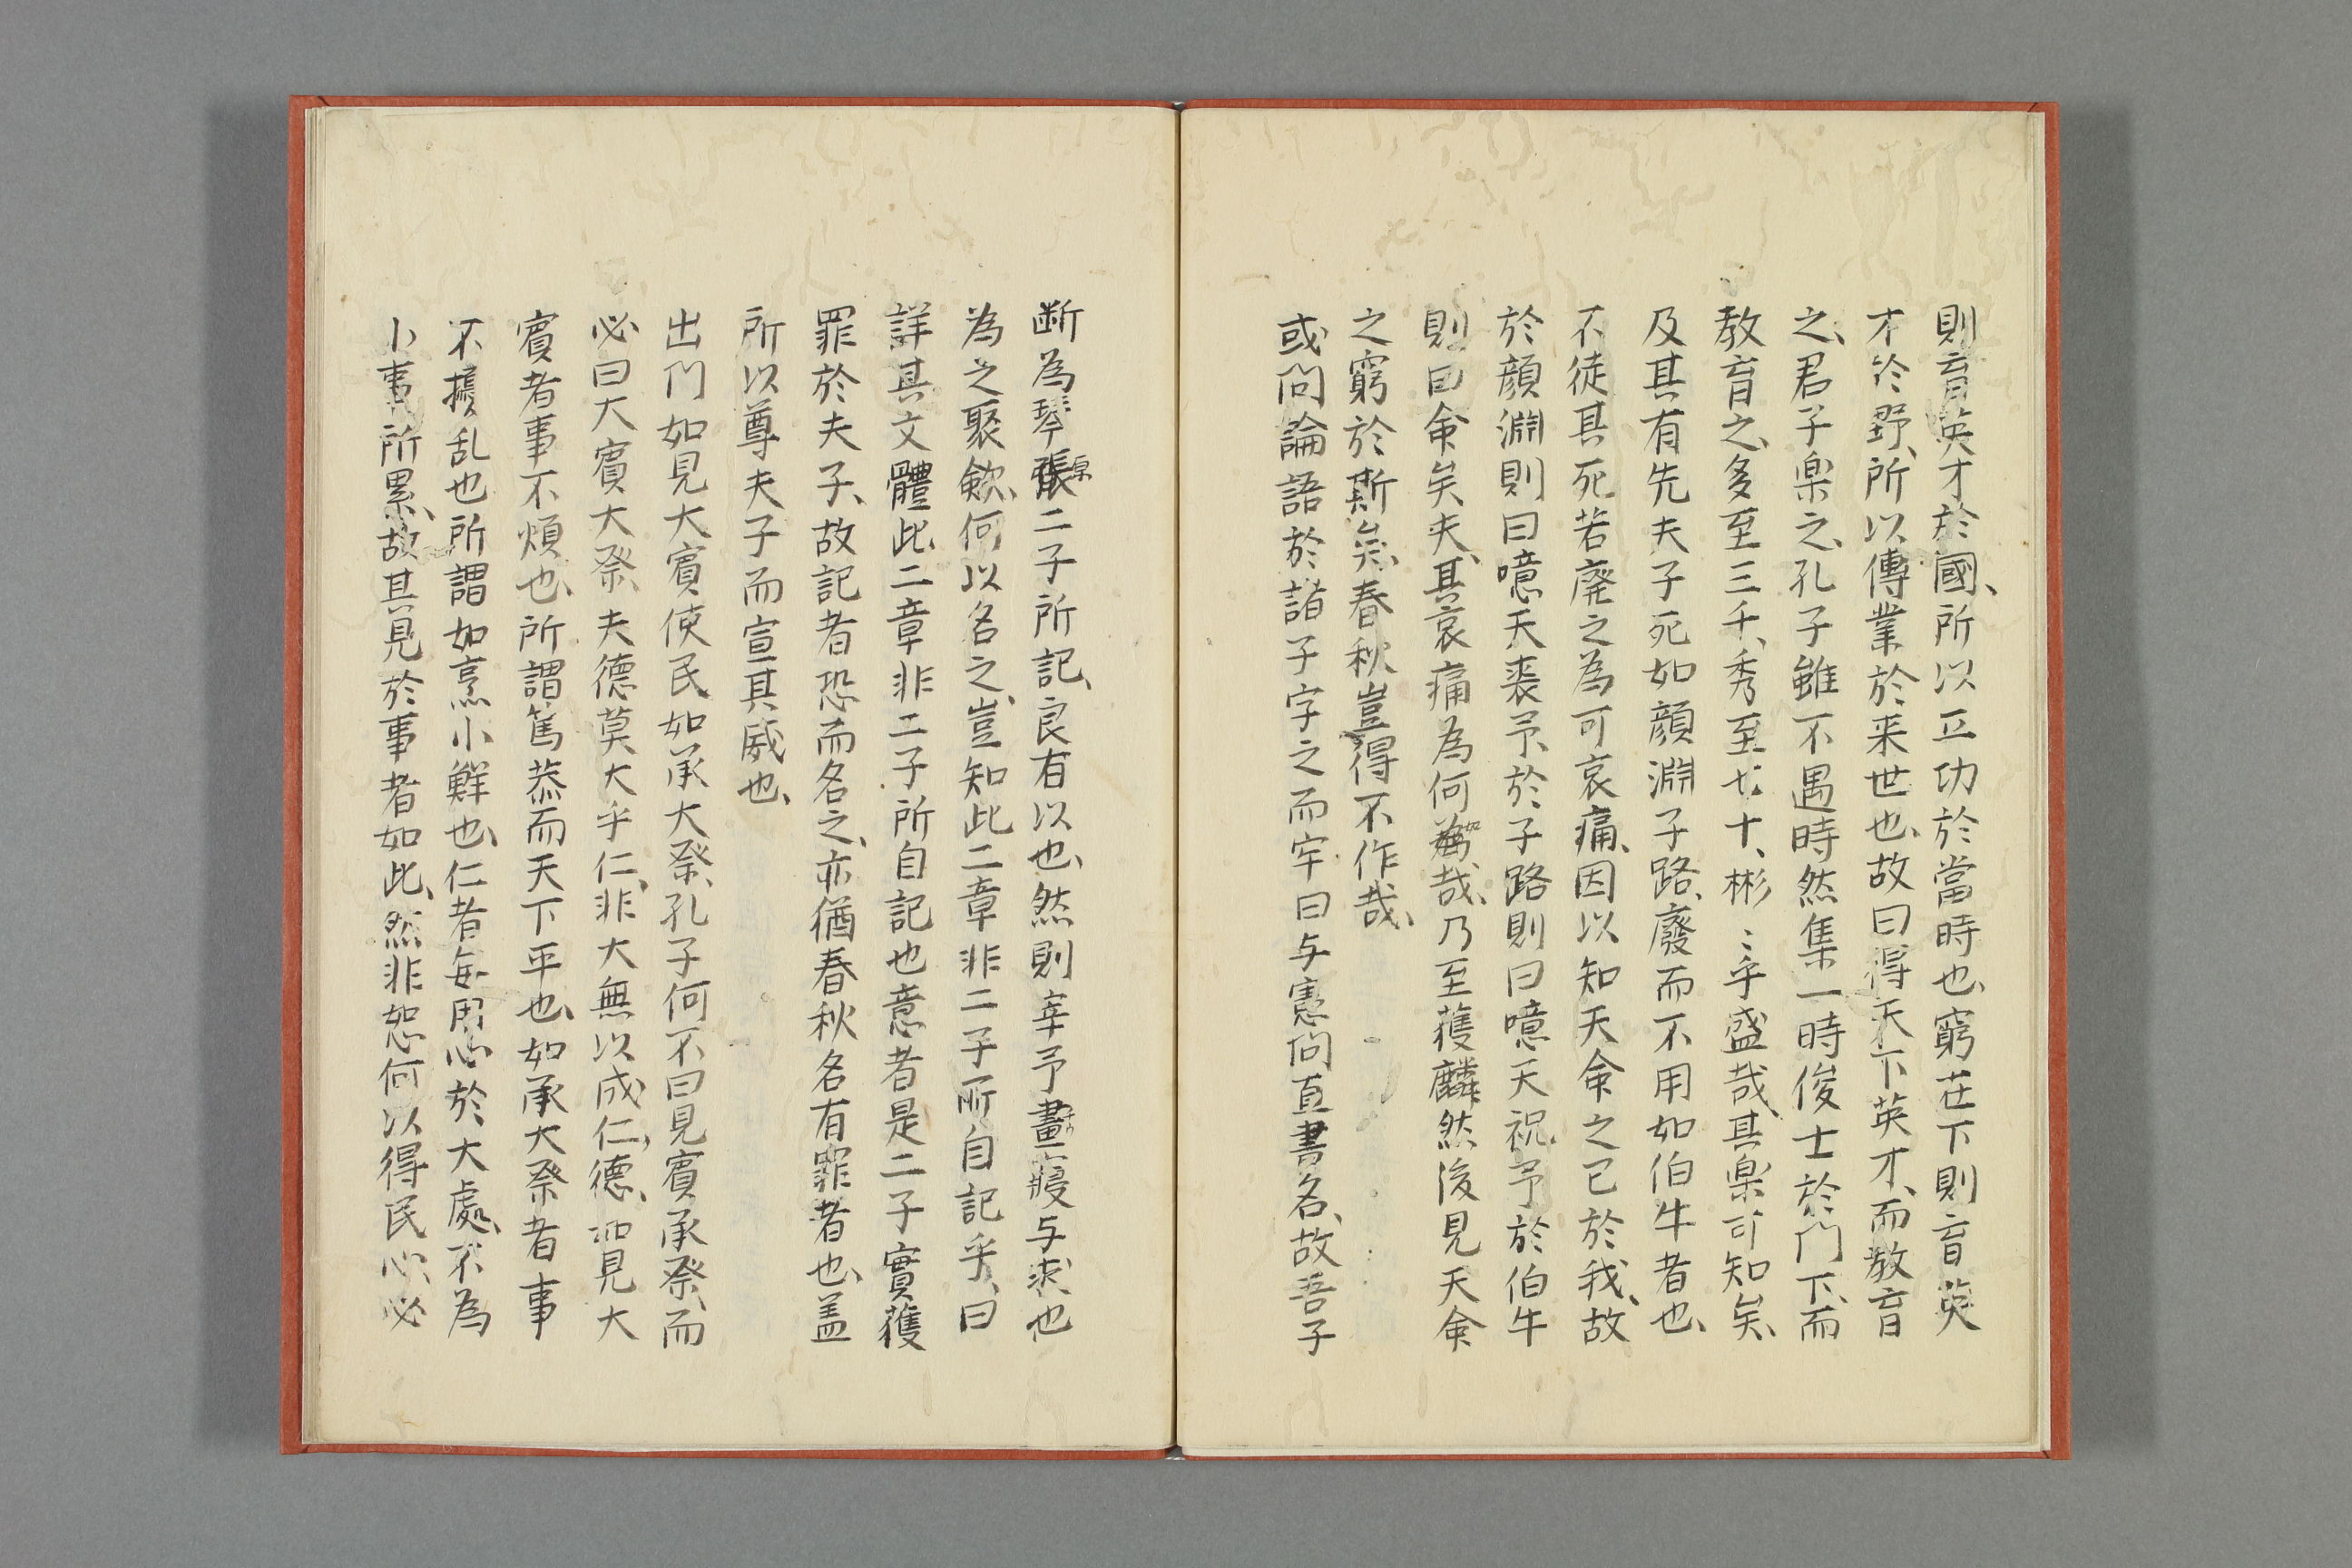 則育英才於國、所以立功於當時也、窮在下則育英
才於野、所以傳業於来世也、故曰得天下英才、而教育
之、君子楽之、孔子雖不遇時然集一時俊士於門下、而
教育之、多至三千、秀至七十、彬〻乎盛哉、其楽可知矣、
及其有先夫子死如顔淵子路、廢而不用如伯牛者也、
不徒其死若廃之為可哀痛、因以知天命之已於我、故
於顔淵則曰噫天喪予、於子路則曰噫天祝予、於伯牛
則曰命矣夫、其哀痛為何如哉、乃至獲麟、然後見天命
之窮於斯矣、春秋豈得不作哉、
或問論語於諸子字之而牢曰与憲問直書名、故吾子
断為琴張原二子所記、良有以也、然則宰予晝寝与求也
為之聚斂、何以名之、豈知此二章非二子所自記乎、曰
詳其文體此二章非二子所自記也意者是二子實獲
罪於夫子、故記者恐而名之、亦猶春秋名有罪者也、盖
所以尊夫子而宣其威也、
出門如見大賓使民如承大祭、孔子何不曰見賓承祭、而
必曰大賓大祭、夫德莫大乎仁、非大無以成仁、德、如見大
賓者事不煩也、所謂篤恭而天下平也、如承大祭者事
不擾乱也所謂如烹小鮮也、仁者每用心於大處、不為
小事所累、故其見於事者如此、然非恕何以得民心、必